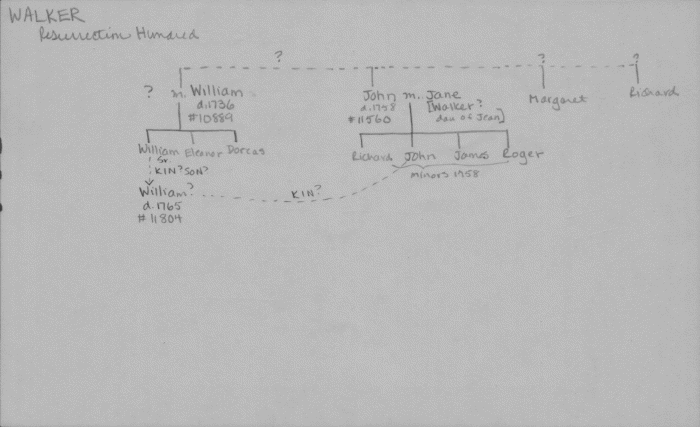 WALKER
Resurrection Hundred
?
? ?
? m. William
d. 1736
#10889
John m. Jane
d. 1758
#11560
[Walker?
dau of Jean]
Margaret
Richard
William Eleanor Dorcas
Sr.
KIN? SON?
Richard John James Roger
minors 1758
William?
d. 1765
#11804
KIN?